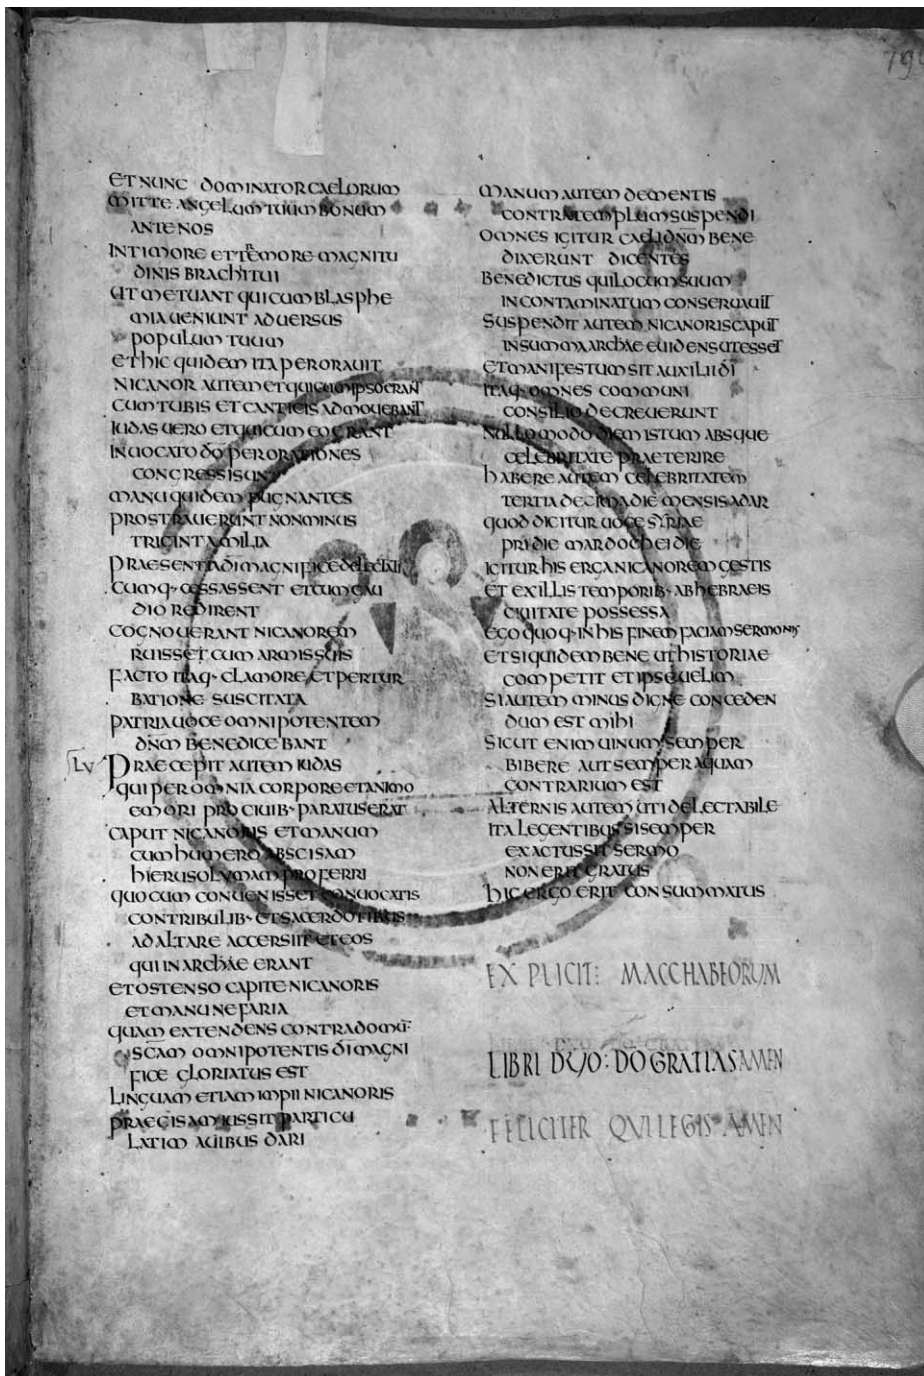 79
ET NUNC DOMINATOR CAELORUM
MITTE ANGELUM TUUM BONUM
ANTE NOS
IN TIMORE ET TREMORE MAGNITU
DINIS BRACHII TUI
UT METUANT QUI CUM BLASPHE
MIA UENIUNT ADUERSUS
POPULUM TUUM
ET HIC QUIDEM ITA PERORAUIT
NICANOR AUTEM ET QUI CUM IPSO ERANT
CUM TUBIS ET CANTICIS ADMOUEBANT
IUDAS UERO ET QUI CUM EO ERANT
INUOCATO D̅O̅ PER ORATIONES
CONGRESSI SUNT
MANU QUIDEM PUGNANTES
PROSTRAUERUNT NON MINUS
TRIGINTA MILIA
PRAESENTIA D̅I̅ MAGNIFICE DELECTATI
CUMQ· CESSASSENT ET CUM GAU
DIO REDIRENT
COGNOUERANT NICANOREM
RUISSET CUM ARMIS SUIS
FACTO ITAQ· CLAMORE ET PERTUR
BATIONE SUSCITATA
PATRIA UOCE OMNIPOTENTEM
D̅N̅M̅ BENEDICEBANT
LV PRAECEPIT AUTEM IUDAS
QUI PER OMNIA CORPORE ET ANIMO
EMORI PRO CIUIB· PARATUS ERAT
CAPUT NICANORIS ET MANUM
CUM HUMERO ABSCISAM
HIEROSOLYMAM PROFERRI
QUO CUM CONUENISSET CONUOCATIS
CONTRIBULIB· ET SACERDOTIBUS
AD ALTARE ACCERSIIT ET EOS
QUI IN ARCHAE ERANT
ET OSTENSO CAPITE NICANORIS
ET MANU NEFARIA
QUAM EXTENDENS CONTRA DOMU̅
S̅C̅A̅M̅ OMNIPOTENTIS D̅I̅ MAGNI
FICE GLORIATUS EST
LINGUAM ETIAM IMPII NICANORIS
PRAECISAM IUSSIT PARTICU
LATIM AUIBUS DARI
MANUM AUTEM DEMENTIS
CONTRA TEMPLUM SUSPENDI
OMNES IGITUR CAELI D̅N̅M̅ BENE
DIXERUNT DICENTES
BENEDICTUS QUI LOCUM SUUM
INCONTAMINATUM CONSERUAUIT
SUSPENDIT AUTEM NICANORIS CAPUT
IN SUMMA ARCHAE EUIDENS UT ESSET
ET MANIFESTUM SIT AUXILII D̅I̅
ITAQ· OMNES COMMUNI
CONSILIO DECREUERUNT
NULLO MODO DIEM ISTUM ABSQUE
CELEBRITATE PRAETERIRE
HABERE AUTEM CELEBRITATEM
TERTIA DECIMA DIE MENSIS ADAR
QUOD DICITUR UOCE SYRIAE
PRIDIE MARDOCHEI DIE
IGITUR HIS ERGA NICANOREM GESTIS
ET EX ILLIS TEMPORIB· AB HEBRAEIS
CIUITATE POSSESSA
EGO QUOQ· IN HIS FINEM FACIAM SERMONIS
ET SI QUIDEM BENE UT HISTORIAE
COMPETIT ET IPSE UELIM
SI AUTEM MINUS DIGNE CONCEDEN
DUM EST MIHI
SICUT ENIM UINUM SEMPER
BIBERE AUT SEMPER AQUAM
CONTRARIUM EST
ALTERNIS AUTEM UTI DELECTABILE
ITA LEGENTIBUS SI SEMPER
EXACTUS SIT SERMO
NON ERIT GRATUS
HIC ERGO ERIT CONSUMMATUS
EXPLICIT: MACCHABEORUM
LIBRI DUO: DO GRATIAS AMEN
FELICITER QUI LEGIS AMEN